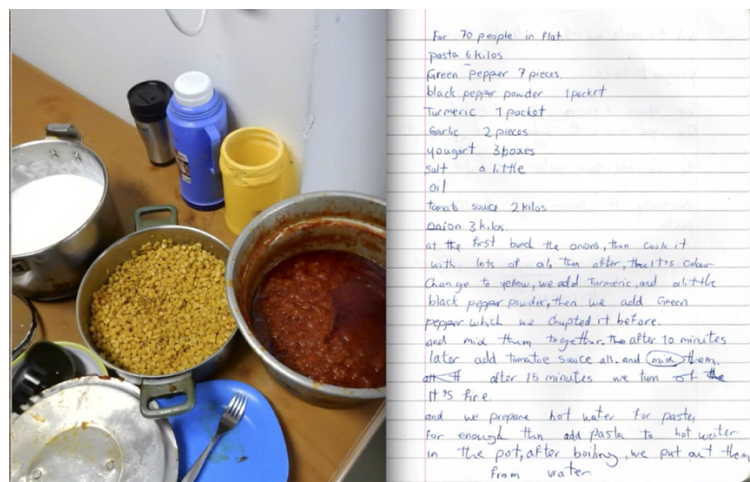 For 70 people in flat.
pasta 6 kilos
Green pepper 7 pieces
black pepper powder 1 packet
Turmeric 1 packet
Garlic 2 pieces
yougort 3 boxes
salt a little
oil
tomato sauce 2 kilos
onion 3 kilos.
at the first the onions, then cook it
with lots of oil, then after, the It's colour
change to yellow, we add Turmeric, and a little
black pepper powder, then we add Green
pepper which we chupted it before.
and mix them together. the after 10 minutes
later add tomatoe sauce all. and mix them.
after 15 minutes we turn of the
It's fire.
and we prepare hot water for paste,
for enough then add pasta to hot water
in the pot, after boiling, we put out them
from water